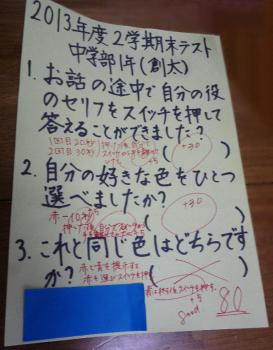 2013年度2学期末テスト
中学部1年(創太)
1. お話の途中で自分の役
のセリフをスイッチを押して
答えることができましたか?
1回目20秒
2回目30秒
+30
+5
2. 自分の好きな色をひとつ
選べましたか?
赤-10秒
+30
3. これと同じ色はどちらです
か?
赤で青を提示すると
+5
good
80